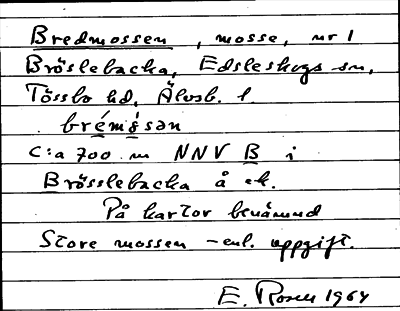 Bredmossen, mosse, nr 1
Bröslebacka, Edsleskogs sn,
Tössbo hd, Älvsb. l.
brém̀ɔ̀sən
C:a 700 m NNV B i
Brösslebacka å ek.
På kartor benämnd
Store mossen - enl. uppgift.
E. Rosell 1964